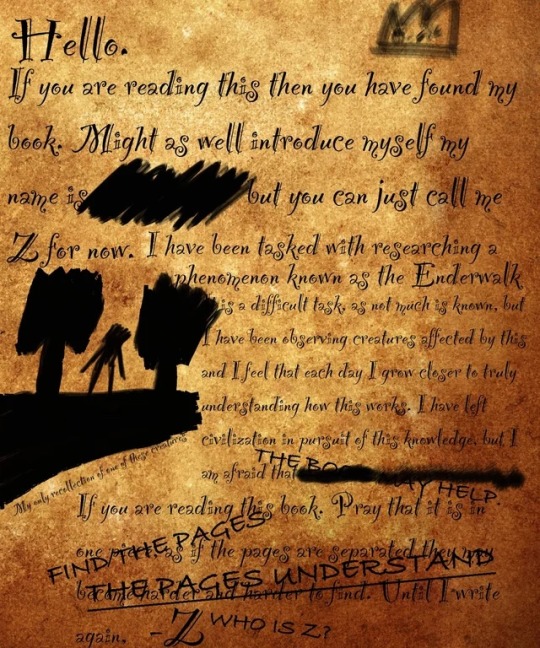 Hello.
If you are reading this then you have found my
book. Might as well introduce myself my
name is but you can just call me
Z for now. I have been tasked with researching a
phenomenon known as the Enderwalk
is a difficult task, as not much is known, but
I have been observing creatures affected by this
and I feel that each day I grow closer to truly
understanding how this works. I have left
civilization in pursuit of this knowledge. but I
am afraid that
THE MAY HELP.
My only recollection of one of these creatures
If you are reading this book. Pray that it is in
FIND THE PAGES
one piece, as if the pages are separated they may
THE PAGES UNDERSTAND
become harder and harder to find. Until I write
again. -Z
WHO IS Z?